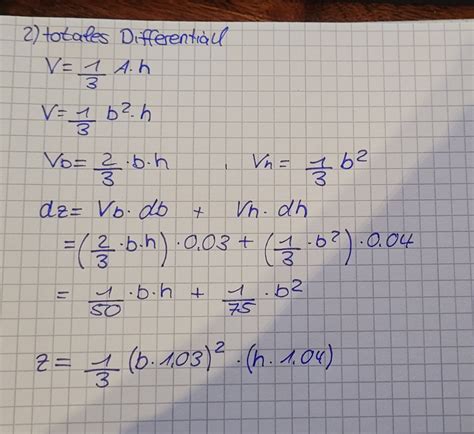 2) totales Differential
V = 1/3 A·h
V = 1/3 b²·h
Vb = 2/3 ·b·h , Vh = 1/3 b²
dz = Vb·db + Vh·dh
= (2/3 ·b·h)·0.03 + (1/3 ·b²)·0.04
= 1/50 ·b·h + 1/75 ·b²
z = 1/3 (b·1,03)² · (h·1.04)